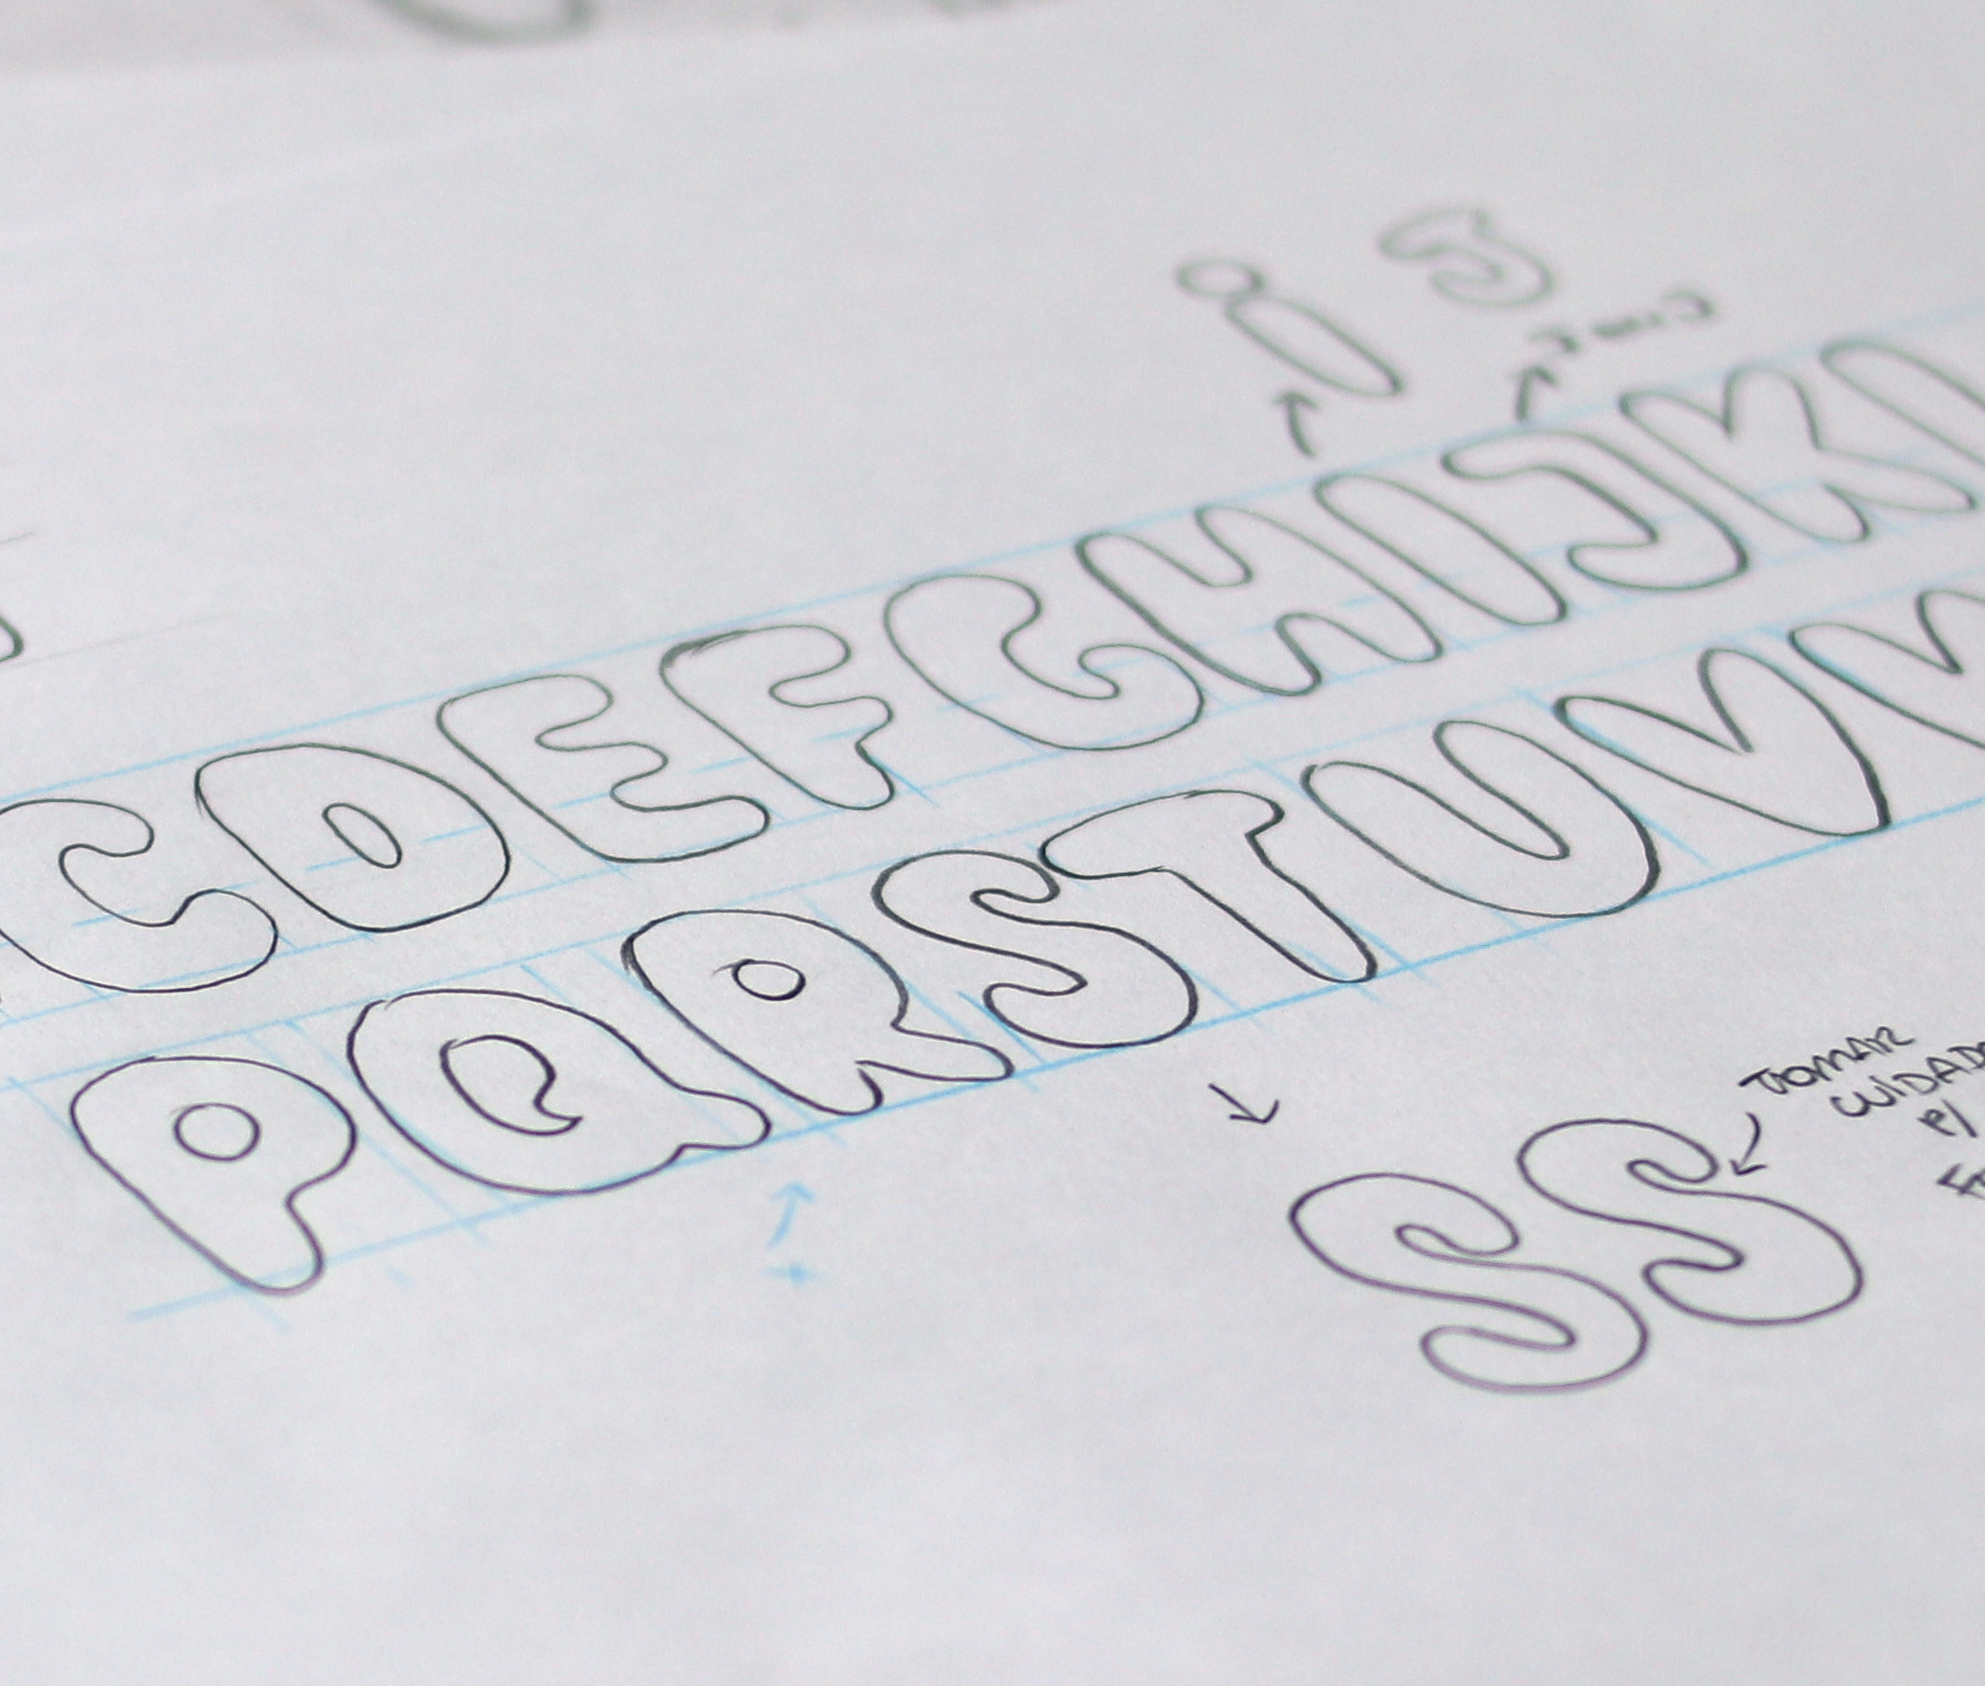 i J
CDEFGHIJK
PQRSTUV
SS
TOMAR
CUIDADO
P/